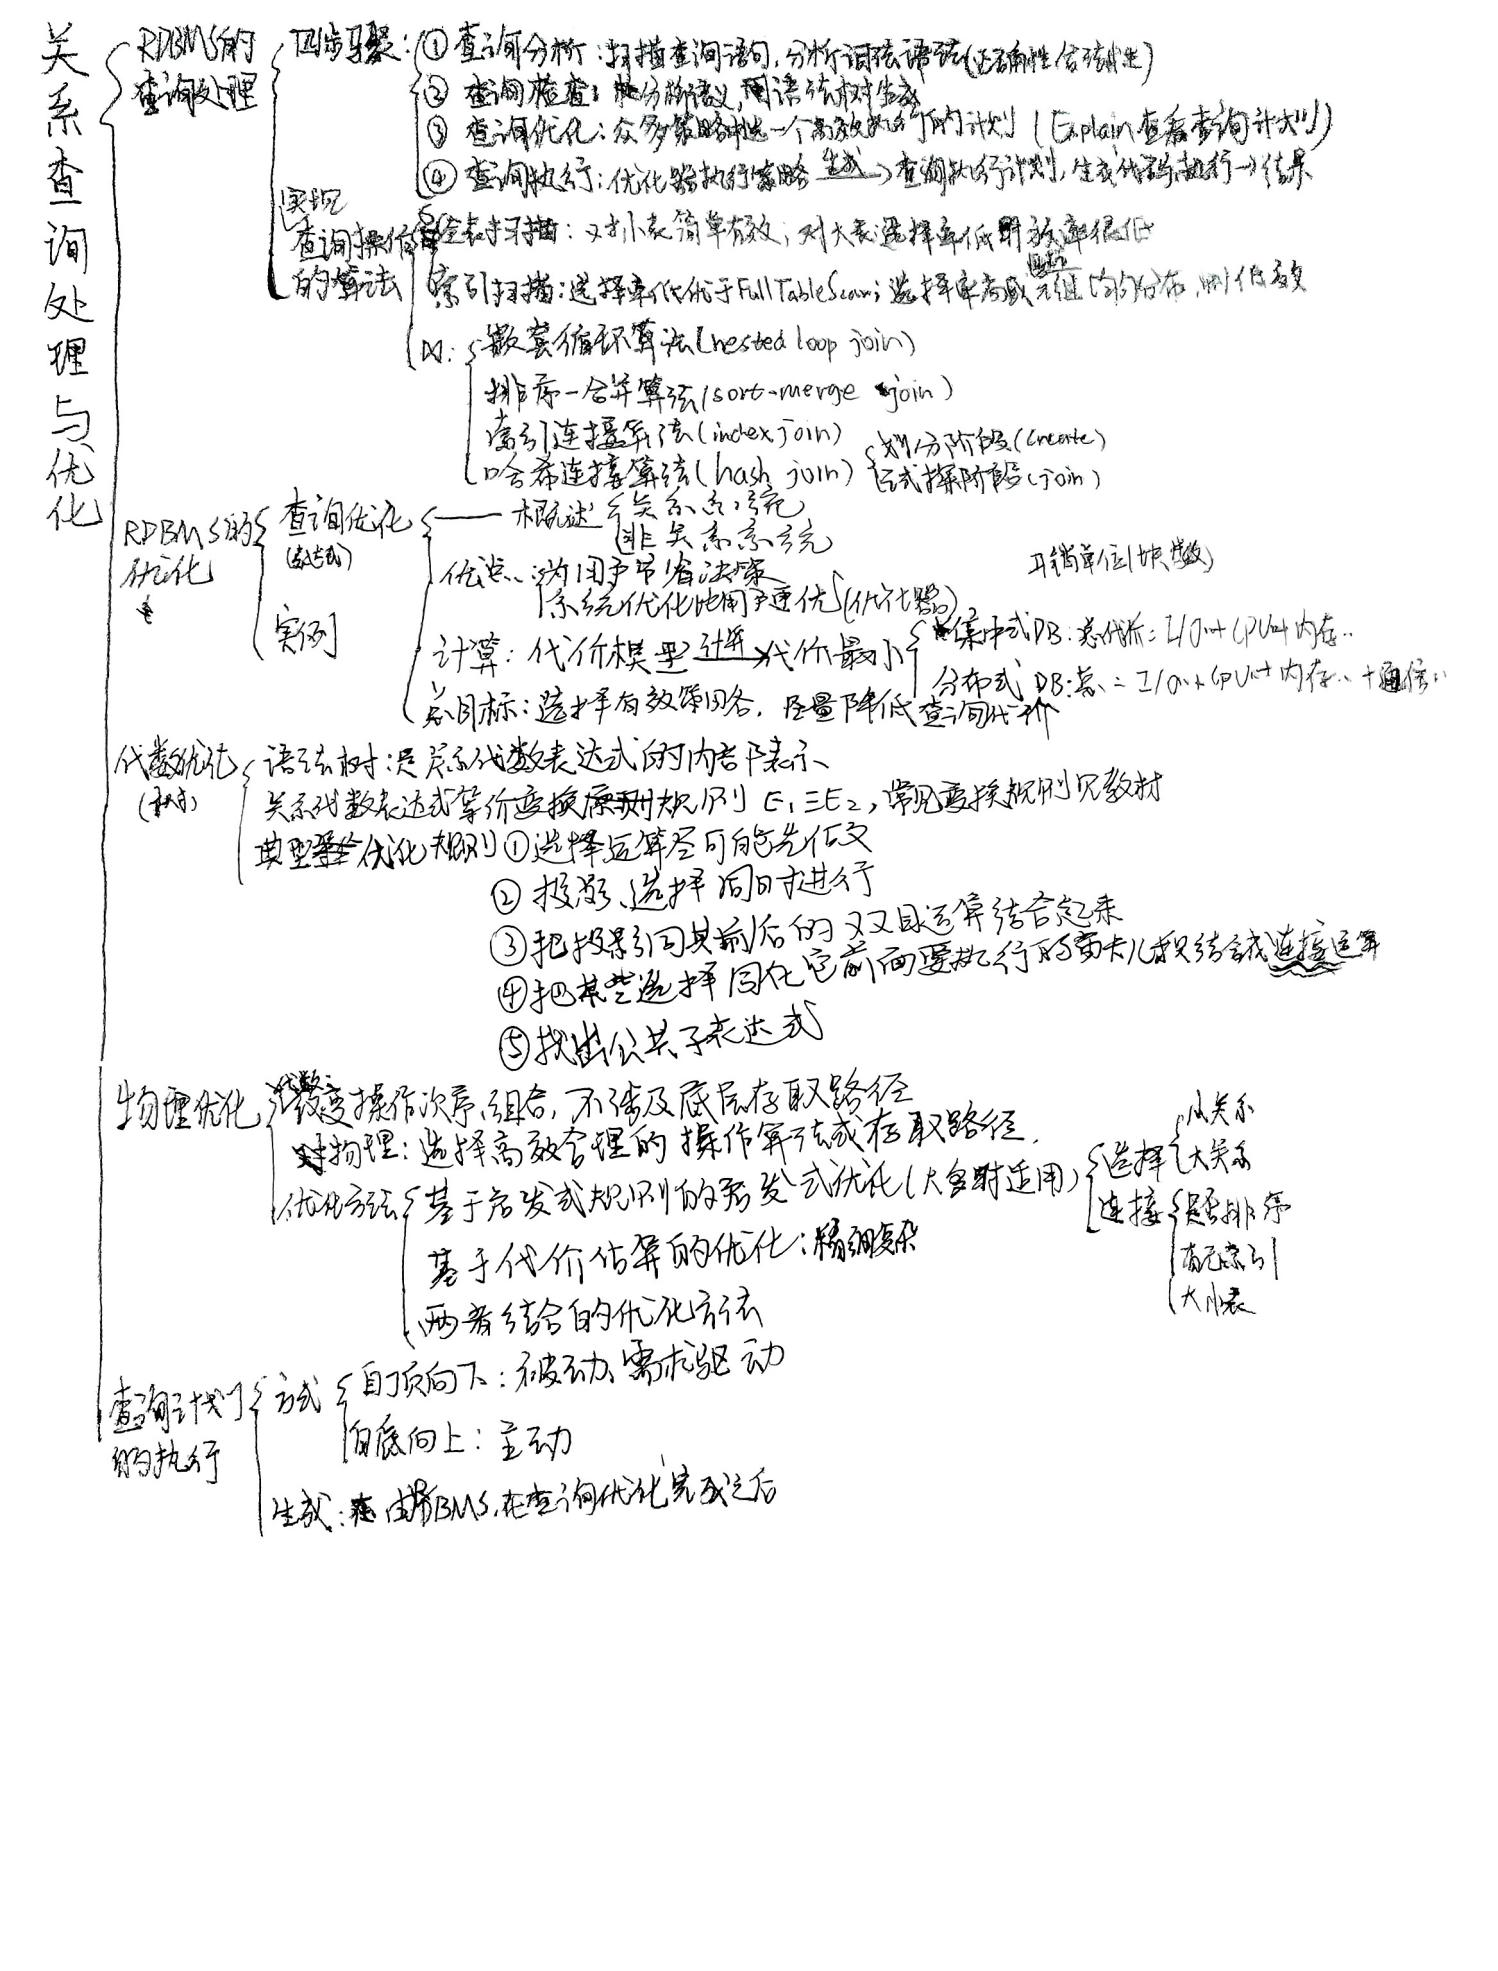 关系查询处理与优化
RDBMS的
查询处理
四步骤：① 查询分析：扫描查询语句，分析词法语法(正确性合法性)
② 查询检查：分析语义，用语法树生成
③ 查询优化：众多策略中选一个高效执行的计划 (Explain查看查询计划)
④ 查询执行：优化器执行策略 生成→查询执行计划，生成代码执行→结果
实现
查询操作
的算法
全表扫描：对小表简单有效；对大表选择率低时效率很低
索引扫描：选择率低优于FullTableScan；选择率高或元组均匀分布，则低效
⋈：嵌套循环算法(nested loop join)
排序-合并算法(sort-merge join)
索引连接算法(index join)
哈希连接算法(hash join)
划分阶段(Create)
试探阶段(join)
RDBMS的
优化
查询优化
概述
关系系统
非关系系统
优点：为用户节省决策
系统优化比用户更优(优化器)
实例
开销单位(块数)
计算：代价模型 计算→代价最小
集中式DB：总代价=I/O..+CPU..+内存..
分布式DB：总..=I/O..+CPU..+内存..+通信..
总目标：选择有效策略，尽量降低查询代价
代数优化
语法树：是关系代数表达式的内部表示
关系代数表达式等价变换规则 E₁≡E₂，常见变换规则见教材
典型优化规则①选择运算尽可能先做
②投影、选择同时进行
③把投影同其前/后的双目运算结合起来
④把某些选择同在它前面要执行的笛卡儿积结合成连接运算
⑤找出公共子表达式
物理优化
代数：改变操作次序、组合，不涉及底层存取路径
物理：选择高效合理的操作算法或存取路径.
优化方法
基于启发式规则的启发式优化(大多时适用)
选择
小关系
大关系
连接
是否排序
有无索引
大小表
基于代价估算的优化：精细复杂
两者结合的优化方法
查询计划
的执行
方式
自顶向下：被动、需求驱动
自底向上：主动
生成：由RDBMS，在查询优化完成之后